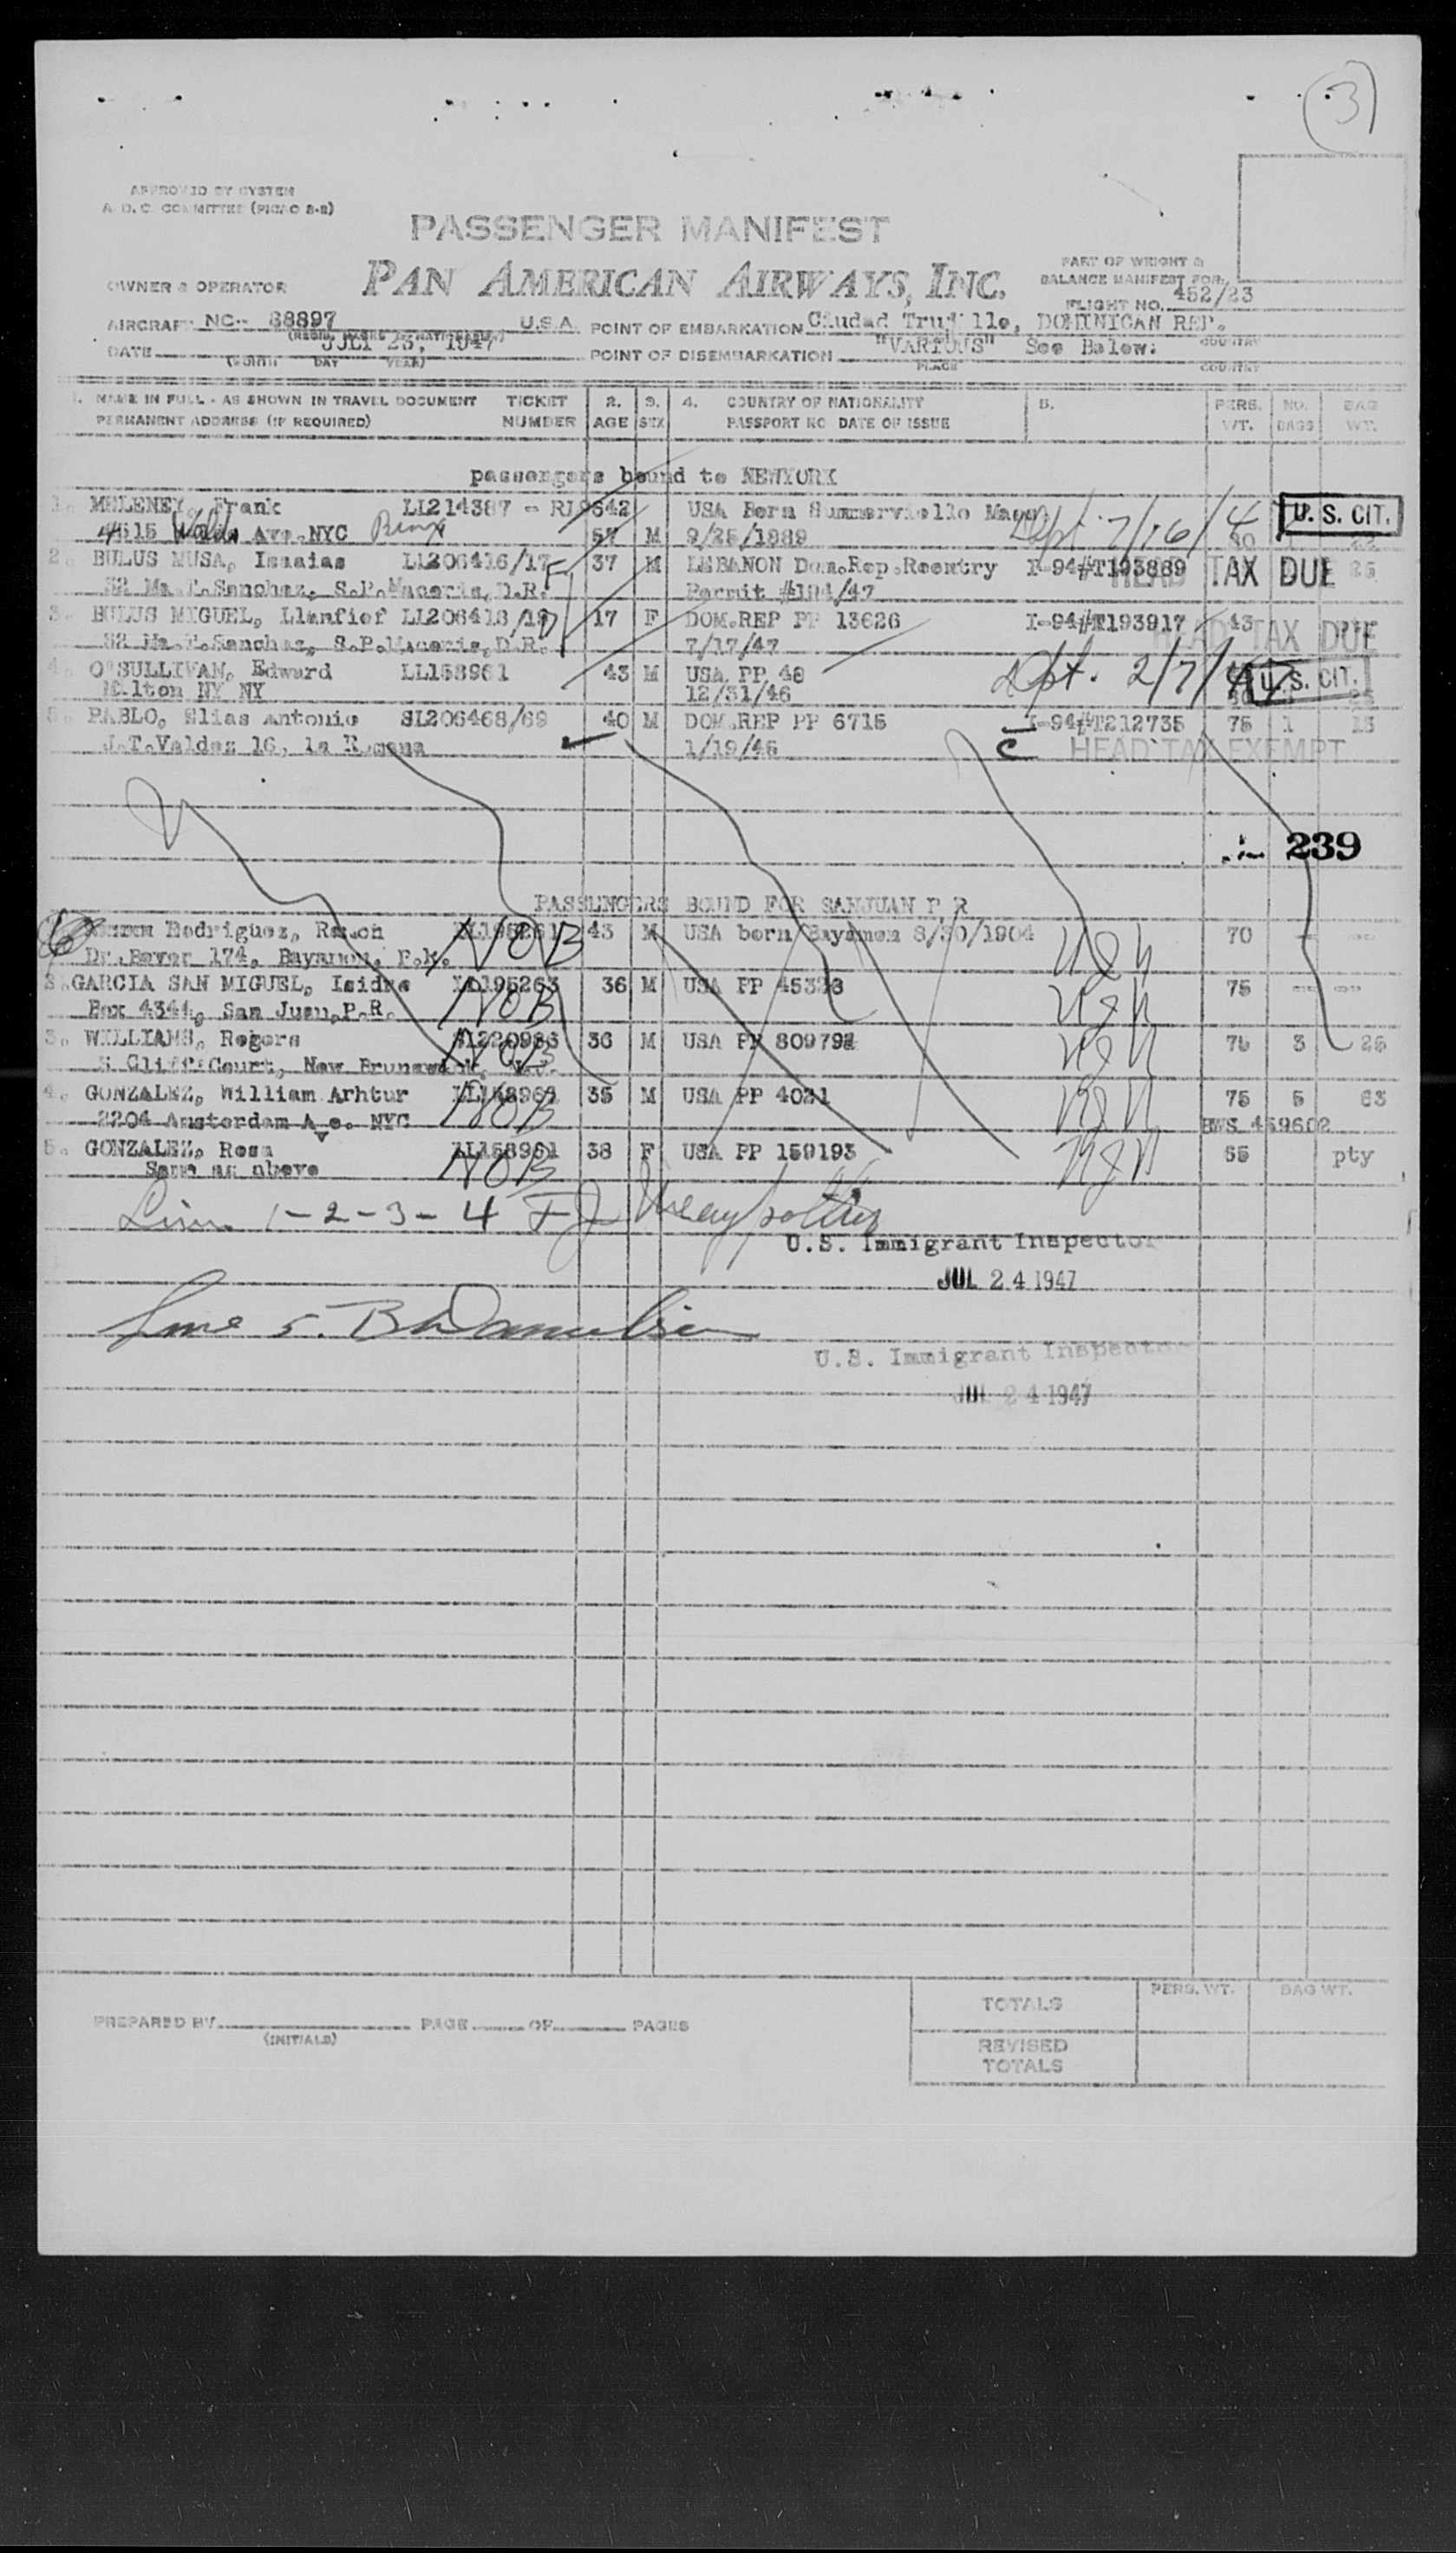 3
APPROVED BY SYSTEM
A.D.C. COMMITTEE (PICAO 3-2)
PASSENGER MANIFEST
PAN AMERICAN AIRWAYS, INC.
PART OF WEIGHT &
BALANCE MANIFEST FOR:
OWNER & OPERATOR
FLIGHT NO. 452/23
AIRCRAFT NC- 88897 U.S.A. POINT OF EMBARKATION Ciudad Trujillo, DOMINICAN REP.
DATE JULY 23, 1947 POINT OF DISEMBARKATION "VARIOUS" See Below:
(MONTH DAY YEAR) PLACE COUNTRY
1. NAME IN FULL - AS SHOWN IN TRAVEL DOCUMENT TICKET 2. 3. 4. COUNTRY OF NATIONALITY 5. PERS. NO. BAG
PERMANENT ADDRESS (IF REQUIRED) NUMBER AGE SEX PASSPORT NO DATE OF ISSUE WT. BAGS WT.
passengers bound to NEWYORK
1. MELENEY, Frank LL214387 - RI9642 USA Born Summerviello Mass. U. S. CIT.
4615 Waldo Ave. NYC Bronx 57 M 9/25/1889
2. BULUS MUSA, Isaias LL206416/17 37 M LEBANON Dom.Rep.Reentry I-94#T193889 HEAD TAX DUE
32 Ma.T.Sanchez, S.P.Macoris, D.R. Permit #184/47
3. BULUS MIGUEL, LL206418/19 17 F DOM.REP PP 13626 I-94#T193917 43 HEAD TAX DUE
32 Ma.T.Sanchez, S.P.Macoris, D.R. 7/17/47
4. O'SULLIVAN, Edward LL158961 43 M USA PP 48 Dpt. 2/7/47 U.S. CIT.
Milton NY NY 12/31/46
5. PABLO, Elias Antonio SL206468/69 40 M DOM.REP PP 6715 I-94#T212735 75 1 13
J.T.Valdez 16, la Romana 1/19/46 C HEAD TAX EXEMPT
239
PASSENGERS BOUND FOR SANJUAN P R
Rodriguez, Ramon LL195261 NOB 43 M USA born Bayamon 8/30/1904 70
Dr. Bever 174, Bayamon, P.R.
2. GARCIA SAN MIGUEL, Isidro LL195263 NOB 36 M USA PP 45328 75
Box 4344, San Juan, P.R.
3. WILLIAMS, Rogers SL220986 NOB 36 M USA PP 809792 76 3 25
Court, New Brunswick,
4. GONZALEZ, William Arhtur LL158962 NOB 35 M USA PP 4021 75 5 63
2204 Amsterdam Ave. NYC
5. GONZALEZ, Rosa LL158961 NOB 38 F USA PP 159193 55 pty
Same as above
Line 1-2-3-4
U.S. Immigrant Inspector
JUL 24 1947
Line 5.
U.S. Immigrant Inspector
JUL 24 1947
TOTALS PERS. WT. BAG WT.
PREPARED BY PAGE OF PAGES
(INITIALS)
REVISED
TOTALS